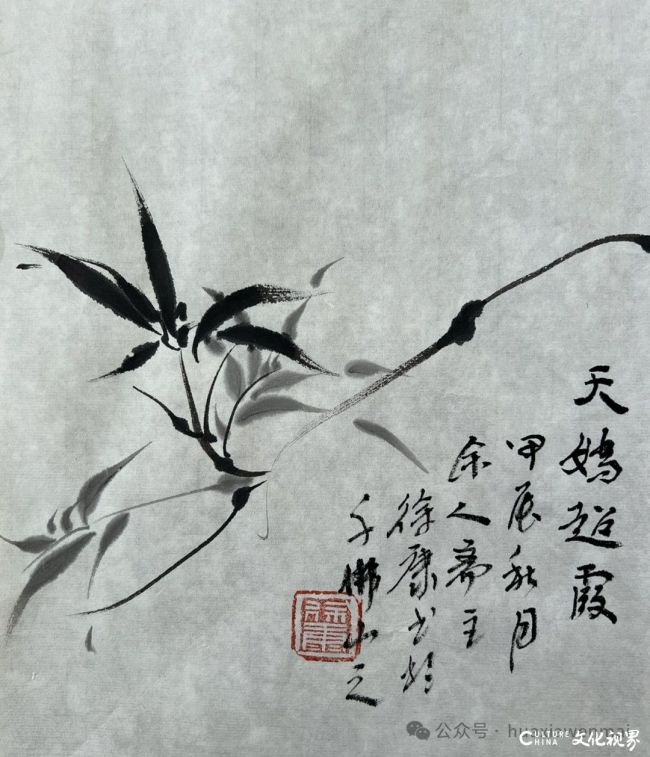 天嬌超霞
甲辰秋月
余人斋主
徐康书於
千佛山之
公众号 · huaxiawenmai
CULTURE
CHINA
文化视界